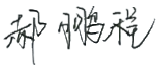 郝鹏程